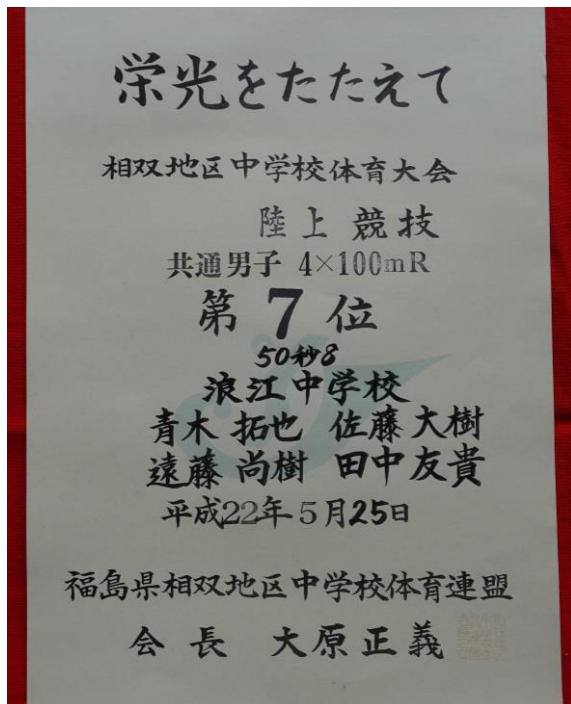 栄光をたたえて
相双地区中学校体育大会
陸上競技
共通男子 4×100mR
第 7 位
50秒8
浪江中学校
青木 拓也 佐藤 大樹
遠藤 尚樹 田中 友貴
平成22年5月25日
福島県相双地区中学校体育連盟
会長 大原正義